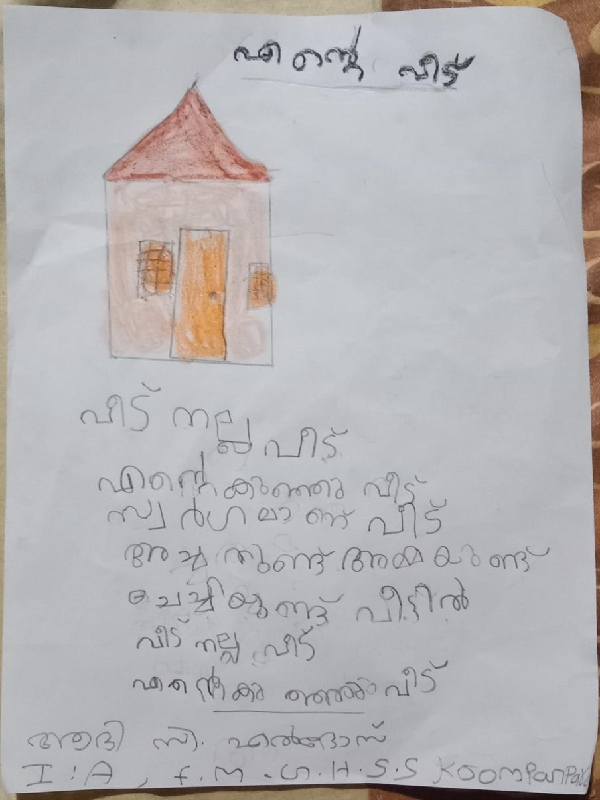 എന്റെ വീട്
വീട് നല്ല വീട്
എന്റെ കുഞ്ഞു വീട്
സ്വർഗമാണ് വീട്
അച്ഛനുണ്ട് അമ്മയുണ്ട്
ചേച്ചിയുണ്ട് വീട്ടിൽ
വീട് നല്ല വീട്
എന്റെ കുഞ്ഞു വീട്
ആദി സി. എൽദോസ്
I : A , F. M . G. H. S. S Koompanpara